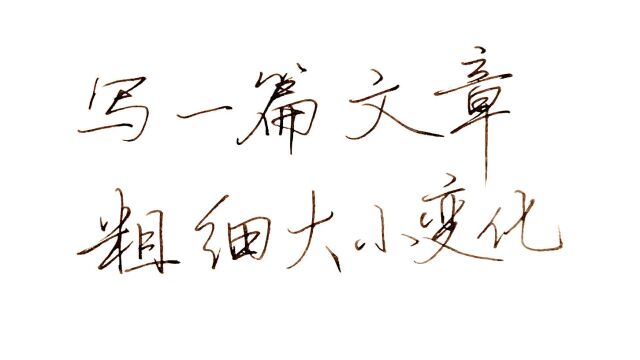 写一篇文章
粗细大小变化